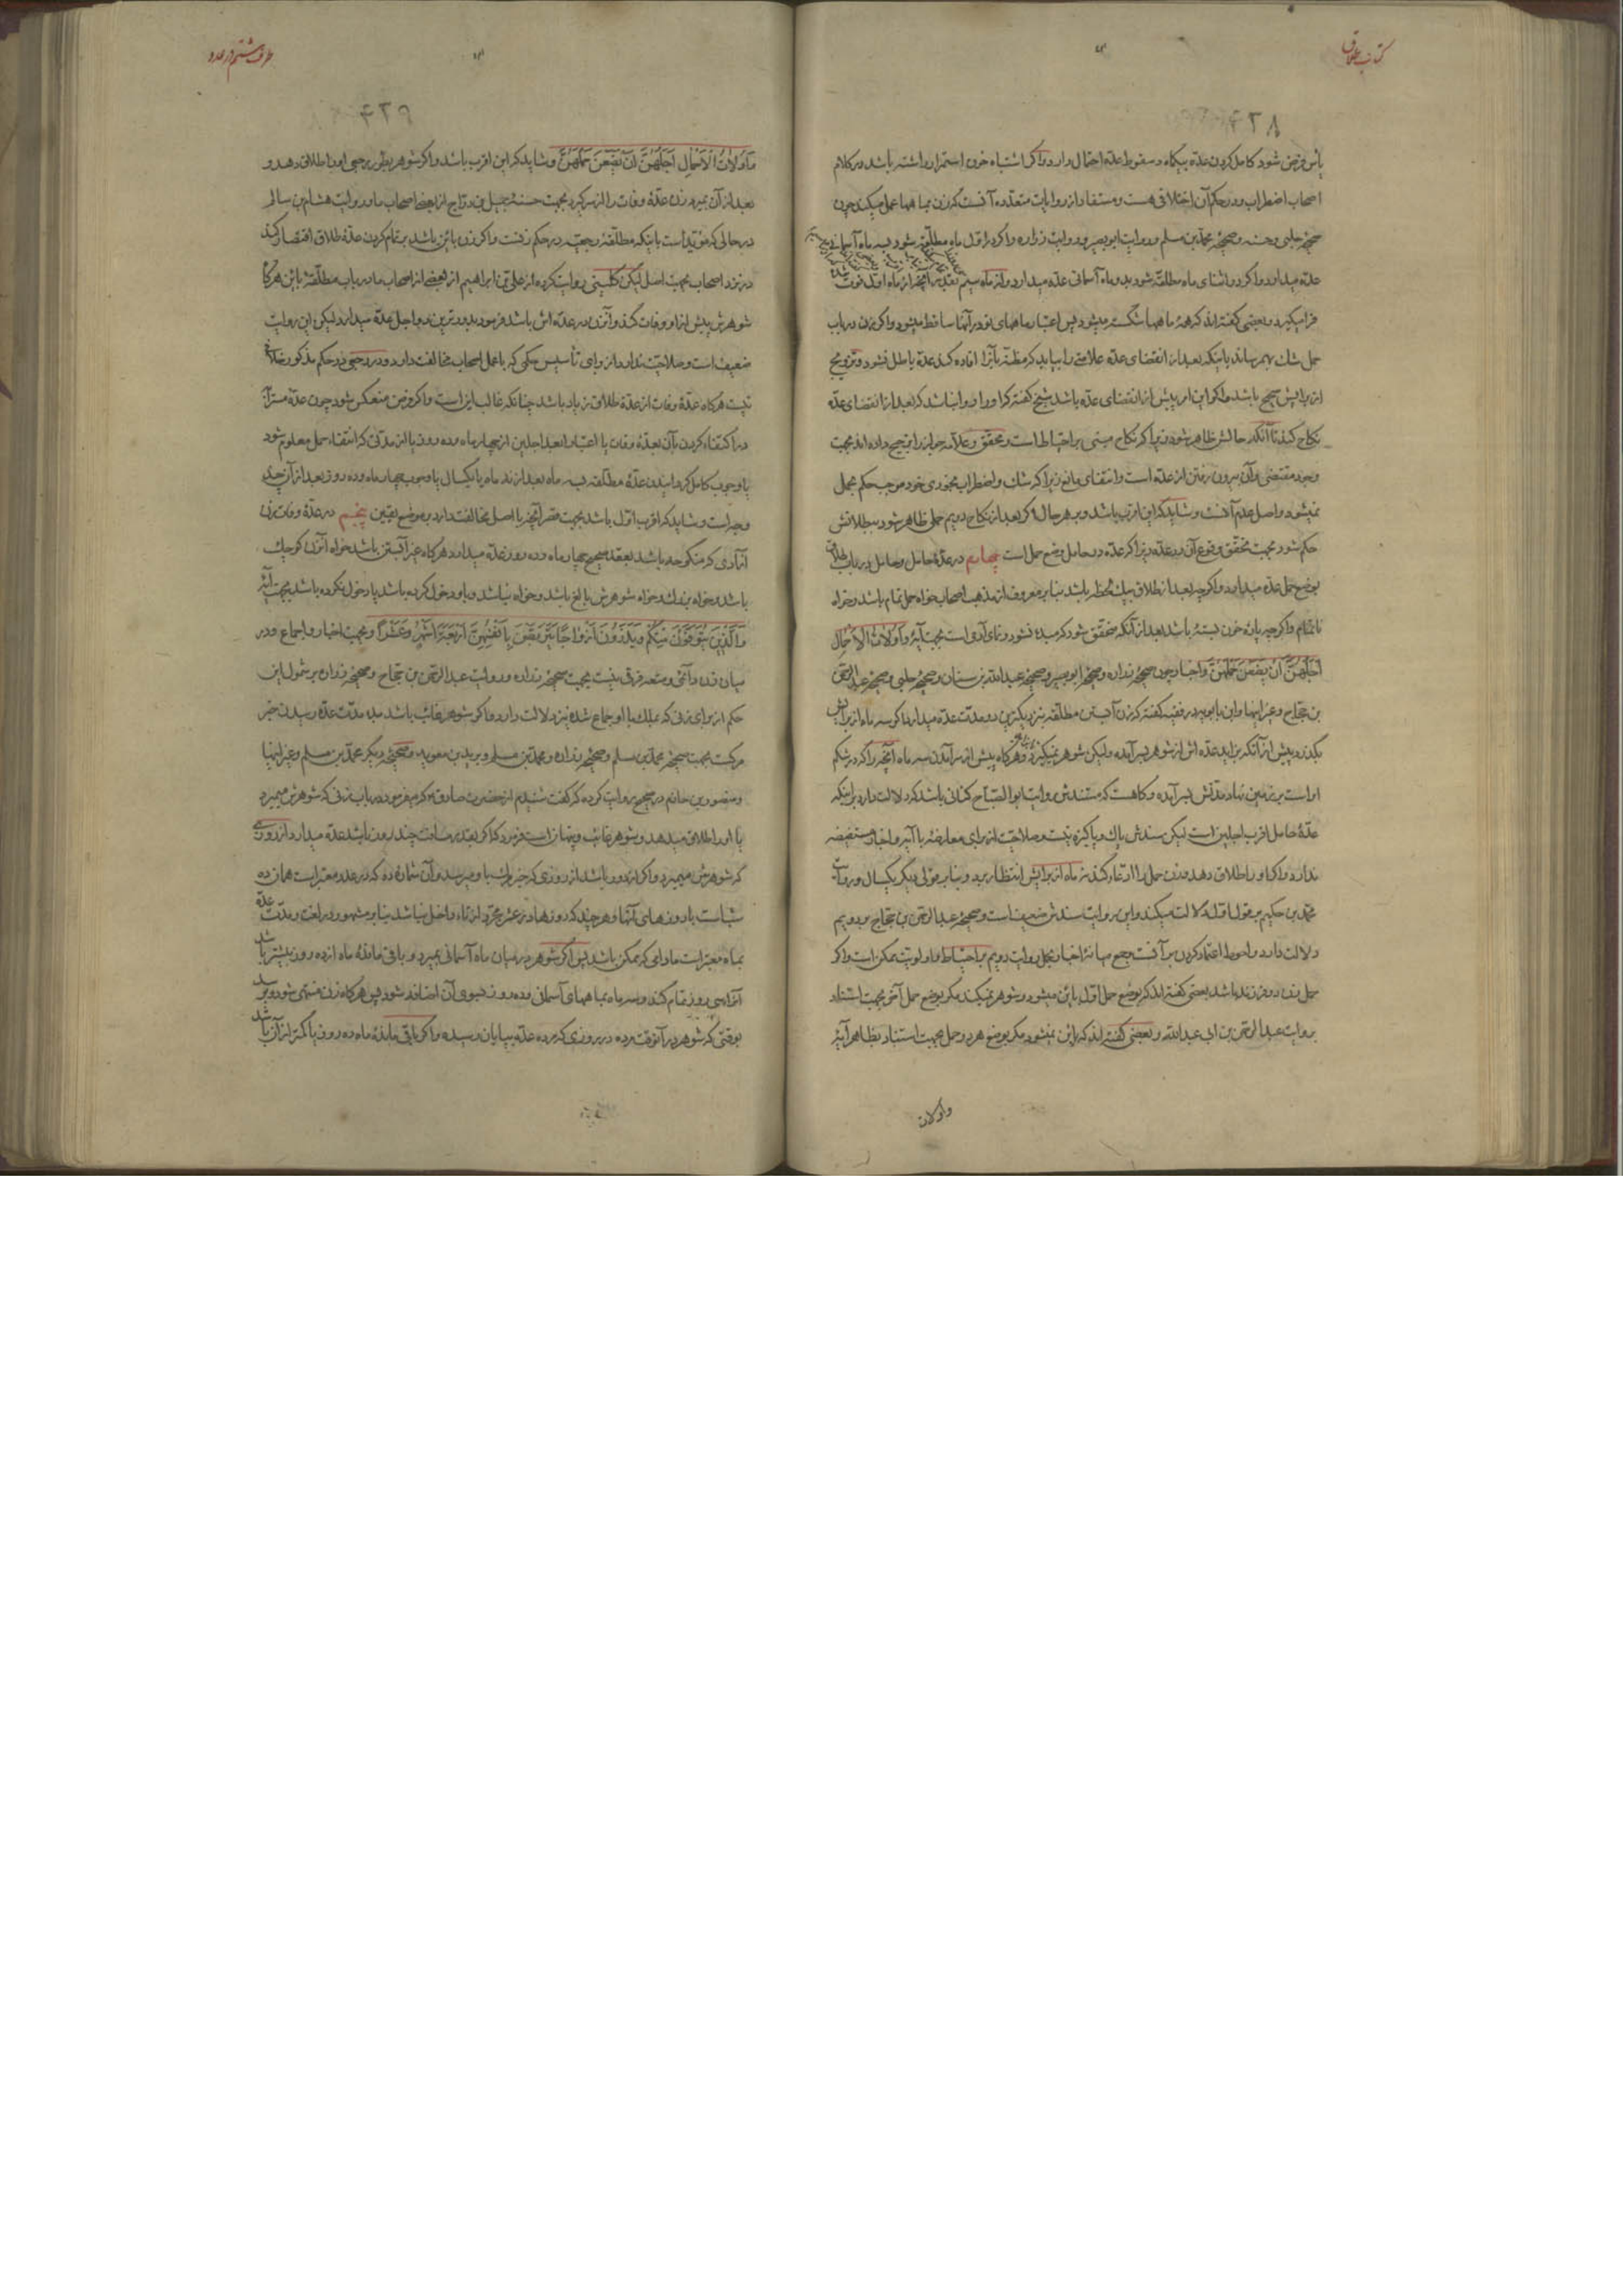 کتاب طلاق
۶۲۸
یأس فرض شود کامل کردن عدّه بیکماه و سقوط عدّه احتمال دارد و اگر اشتباه خون استمرار داشته باشد در کلام
اصحاب اضطراب و در حکم آن اختلافی هست و مستفاد از روایات متعدّده آنست که زن بماهها عمل میکند چون
صحیحهٔ حلبی و حسنه و صحیحهٔ محمّد بن مسلم و روایت ابو بصیر و روایت زراره و اگر در اوّل ماه مطلّقه شود بسه ماه آسمانی
عدّه میدارد و اگر در اثنای ماه مطلّقه شود بدو ماه آسمانی عدّه میدارد و از ماه سیم بقدر آنچه از ماه اوّل فوت شده
فرا میگیرد و بعضی گفته‌اند که همهٔ ماهها شکسته میشود پس اعتبار ماههای نو در آنها ساقط میشود و اگر زن در باب
حمل شک بهم رساند باینکه بعد از انقضای عدّه علامتی را بیابد که مظنّه یا آنرا افاده کند عدّه باطل نشود و تزویج
از برایش صحیح باشد و اگر این امر پیش از انقضای عدّه باشد شیخ گفته که او را روا نباشد که بعد از انقضای عدّه
نکاح کند تا آنکه حالش ظاهر شود زیرا که نکاح مبنی بر احتیاط است و محقق و علّامه جواز را ترجیح داده‌اند بجهت
وجود مقتضی و آن بیرون رفتن از عدّه است و انتفای مانع زیرا که شک و اضطراب بمجرّدی خود موجب حکم بحمل
نمیشود و اصل عدم آنست و شاید که این اقرب باشد و بهر حال اگر بعد از نکاح دویم حملی ظاهر شود ببطلانش
حکم شود بجهت تحقّق وقوع آن در عدّه زیرا که عدّه در حامل وضع حمل است چهارم در عدّهٔ حامل و حامل در باب طلاق
بوضع حمل عدّه میدارد و اگرچه بعد از طلاق بیک لحظه باشد بنا بر معروف از مذهب اصحاب خواه حمل تمام باشد و خواه
ناتمام و اگرچه پارهٔ خون بسته باشد بعد از آنکه متحقّق شود که مبدء نشوء و نمای آدمی است بجهت آیهٔ وَأُولَاتُ الْأَحْمَالِ
أَجَلُهُنَّ أَنْ يَضَعْنَ حَمْلَهُنَّ و اخبار چون صحیحهٔ زراره و صحیحهٔ ابو بصیر و صحیحهٔ عبد الله بن سنان و صحیحهٔ حلبی و صحیحهٔ عبد الرحمن
بن حجّاج و غیر اینها و ابن بابویه در فقیه گفته که زن آبستن مطلّقه بنزدیکترین دو مدّت عدّه میدارد اگر سه ماه از برایش
بگذرد پیش از آنکه بزاید عدّه‌اش از شوهر بسر آمده و لیکن شوهر نمیگیرد و هرگاه پیش از سر آمدن سه ماه آنچه را که در شکم
او است بر زمین نهاد مدّتش بسر آمده و گاهست که مستندش روایت ابو الصبّاح کنانی باشد که دلالت دارد بر اینکه
عدّهٔ حامل اقرب اجلین است لیکن سندش پاک و پاکیزه نیست و صلاحیّت از برای معارضه با آیه و اخبار مستفیضه
ندارد و اگر او را طلاق دهد و زن حمل را ادّعا کند نه ماه از برایش انتظار برد و بنا بر قولی دیگر یکسال و روایت
محمّد بن حکیم بر قول اوّل دلالت میکند و این روایت سندش ضعیف است و صحیحهٔ عبد الرحمن بن حجّاج بر دویم
دلالت دارد و احوط اعتماد کردن بر آنست و جمع میانهٔ اخبار بحمل روایت دویم بر احتیاط و اولویّت ممکن است و اگر
حمل زن دو فرزند باشد بعضی گفته‌اند که بوضع حمل اوّل باین میشود و شوهر نمیکند مگر بوضع حمل آخر بجهت استناد
بروایت عبد الرحمن بن ابی عبدالله و بعضی گفته‌اند که باین نمیشود مگر بوضع هر دو حمل بجهت استناد بظاهر آیهٔ
و اولات
طرف هشتم در عدد
۶۲۹
وَأُولَاتُ الْأَحْمَالِ أَجَلُهُنَّ أَنْ يَضَعْنَ حَمْلَهُنَّ و شاید که این اقرب باشد و اگر شوهر بطور رجعی او را طلاق دهد و
بعد از آن بمیرد زن عدّهٔ وفات را از سر گیرد بجهت حسنهٔ جمیل بن درّاج از بعض اصحاب ما و روایت هشام بن سالم
در حالی که مؤیّد است باینکه مطلّقهٔ رجعیّه در حکم زنست و اگر زن باین باشد بر تمام کردن عدّهٔ طلاق اقتصار کند
در نزد اصحاب بجهت اصل لیکن کلینی روایت کرده از علی بن ابراهیم از بعضی از اصحاب ما در باب مطلّقهٔ باین هرگاه
شوهرش پیش از او وفات کند و آنزن در عدّه‌اش باشد فرمود بدورترین دو اجل عدّه میدارد لیکن این روایت
ضعیف است و صلاحیّت ندارد از برای تأسیس حکمی که با عمل اصحاب مخالفت دارد و در رجعی در حکم مذکور خلافی
نیست هرگاه عدّهٔ وفات از عدّهٔ طلاق زیاد باشد چنانکه غالب این است و اگر فرض منعکس شود چون عدّهٔ مسترابه
در اکتفاء کردن بآن بعدّهٔ وفات یا اعتبار ابعد اجلین از چهار ماه و ده روز یا از مدّتی که انتفاء حمل معلوم شود
یا وجوب کامل گردانیدن عدّهٔ مطلّقه بسه ماه بعد از نه ماه یا یکسال یا وجوب چهار ماه و ده روز بعد از آن چندین
وجه است و شاید که اقرب اوّل باشد بجهت قصر آنچه با اصل مخالفت دارد بر موضع یقین پنجم در عدّهٔ وفات زن
آزادی که منکوحه باشد بعقد صحیح چهار ماه و ده روز عدّه میدارد هرگاه غیر آبستن باشد خواه آنزن کوچک
باشد و خواه بزرگ و خواه شوهرش بالغ باشد و خواه نباشد و باو دخول کرده باشد یا دخول نکرده باشد بجهت آیهٔ
وَالَّذِينَ يُتَوَفَّوْنَ مِنْكُمْ وَيَذَرُونَ أَزْوَاجًا يَتَرَبَّصْنَ بِأَنْفُسِهِنَّ أَرْبَعَةَ أَشْهُرٍ وَعَشْرًا و بجهت اخبار و اجماع و در
میان زن دائمی و متعه فرقی نیست بجهت صحیحهٔ زراره و روایت عبد الرحمن بن حجّاج و صحیحهٔ زراره بر شمول این
حکم از برای زنی که بملک با او جماع شده نیز دلالت دارد و اگر شوهر غایب باشد مبدء مدّت عدّه رسیدن خبر
مرگست بجهت صحیحهٔ محمّد بن مسلم و صحیحهٔ زراره و محمّد بن مسلم و برید بن معویه و صحیحهٔ دیگر محمّد بن مسلم و غیر اینها
و منصور بن حازم در صحیح روایت کرده که گفت شنیدم از حضرت صادق ع که میفرمود در باب زنی که شوهرش میمیرد
یا او را طلاق میدهد و شوهر غایب و پنهان است فرمود که اگر بقدر مسافت چند روز باشد عدّه میدارد از روزی
که شوهرش میمیرد و اگر از دور باشد از روزی که خبر باو میرسد و آن شمارهٔ ده که در عدد معتبر است همان ده
شب است با روزهای آنها و هر چند که روزها در عشر مجرّد از تاء داخل نباشد بنا بر مشهور در لغت و مدّت عدّه
بماه معتبر است مادامی که ممکن باشد پس اگر شوهر در میان ماه آسمانی بمیرد و باقی ماندهٔ ماه از ده روز بیشتر باشد
آنرا سی روز تمام کند و سه ماه بماههای آسمانی و ده روز بسوی آن اضافه شود پس هرگاه زن منتهی شود و برسد
بوقتی که شوهر در آنوقت مرده در روزی که مرده عدّه بپایان رسیده و اگر باقی ماندهٔ ماه ده روز یا کمتر از آن باشد